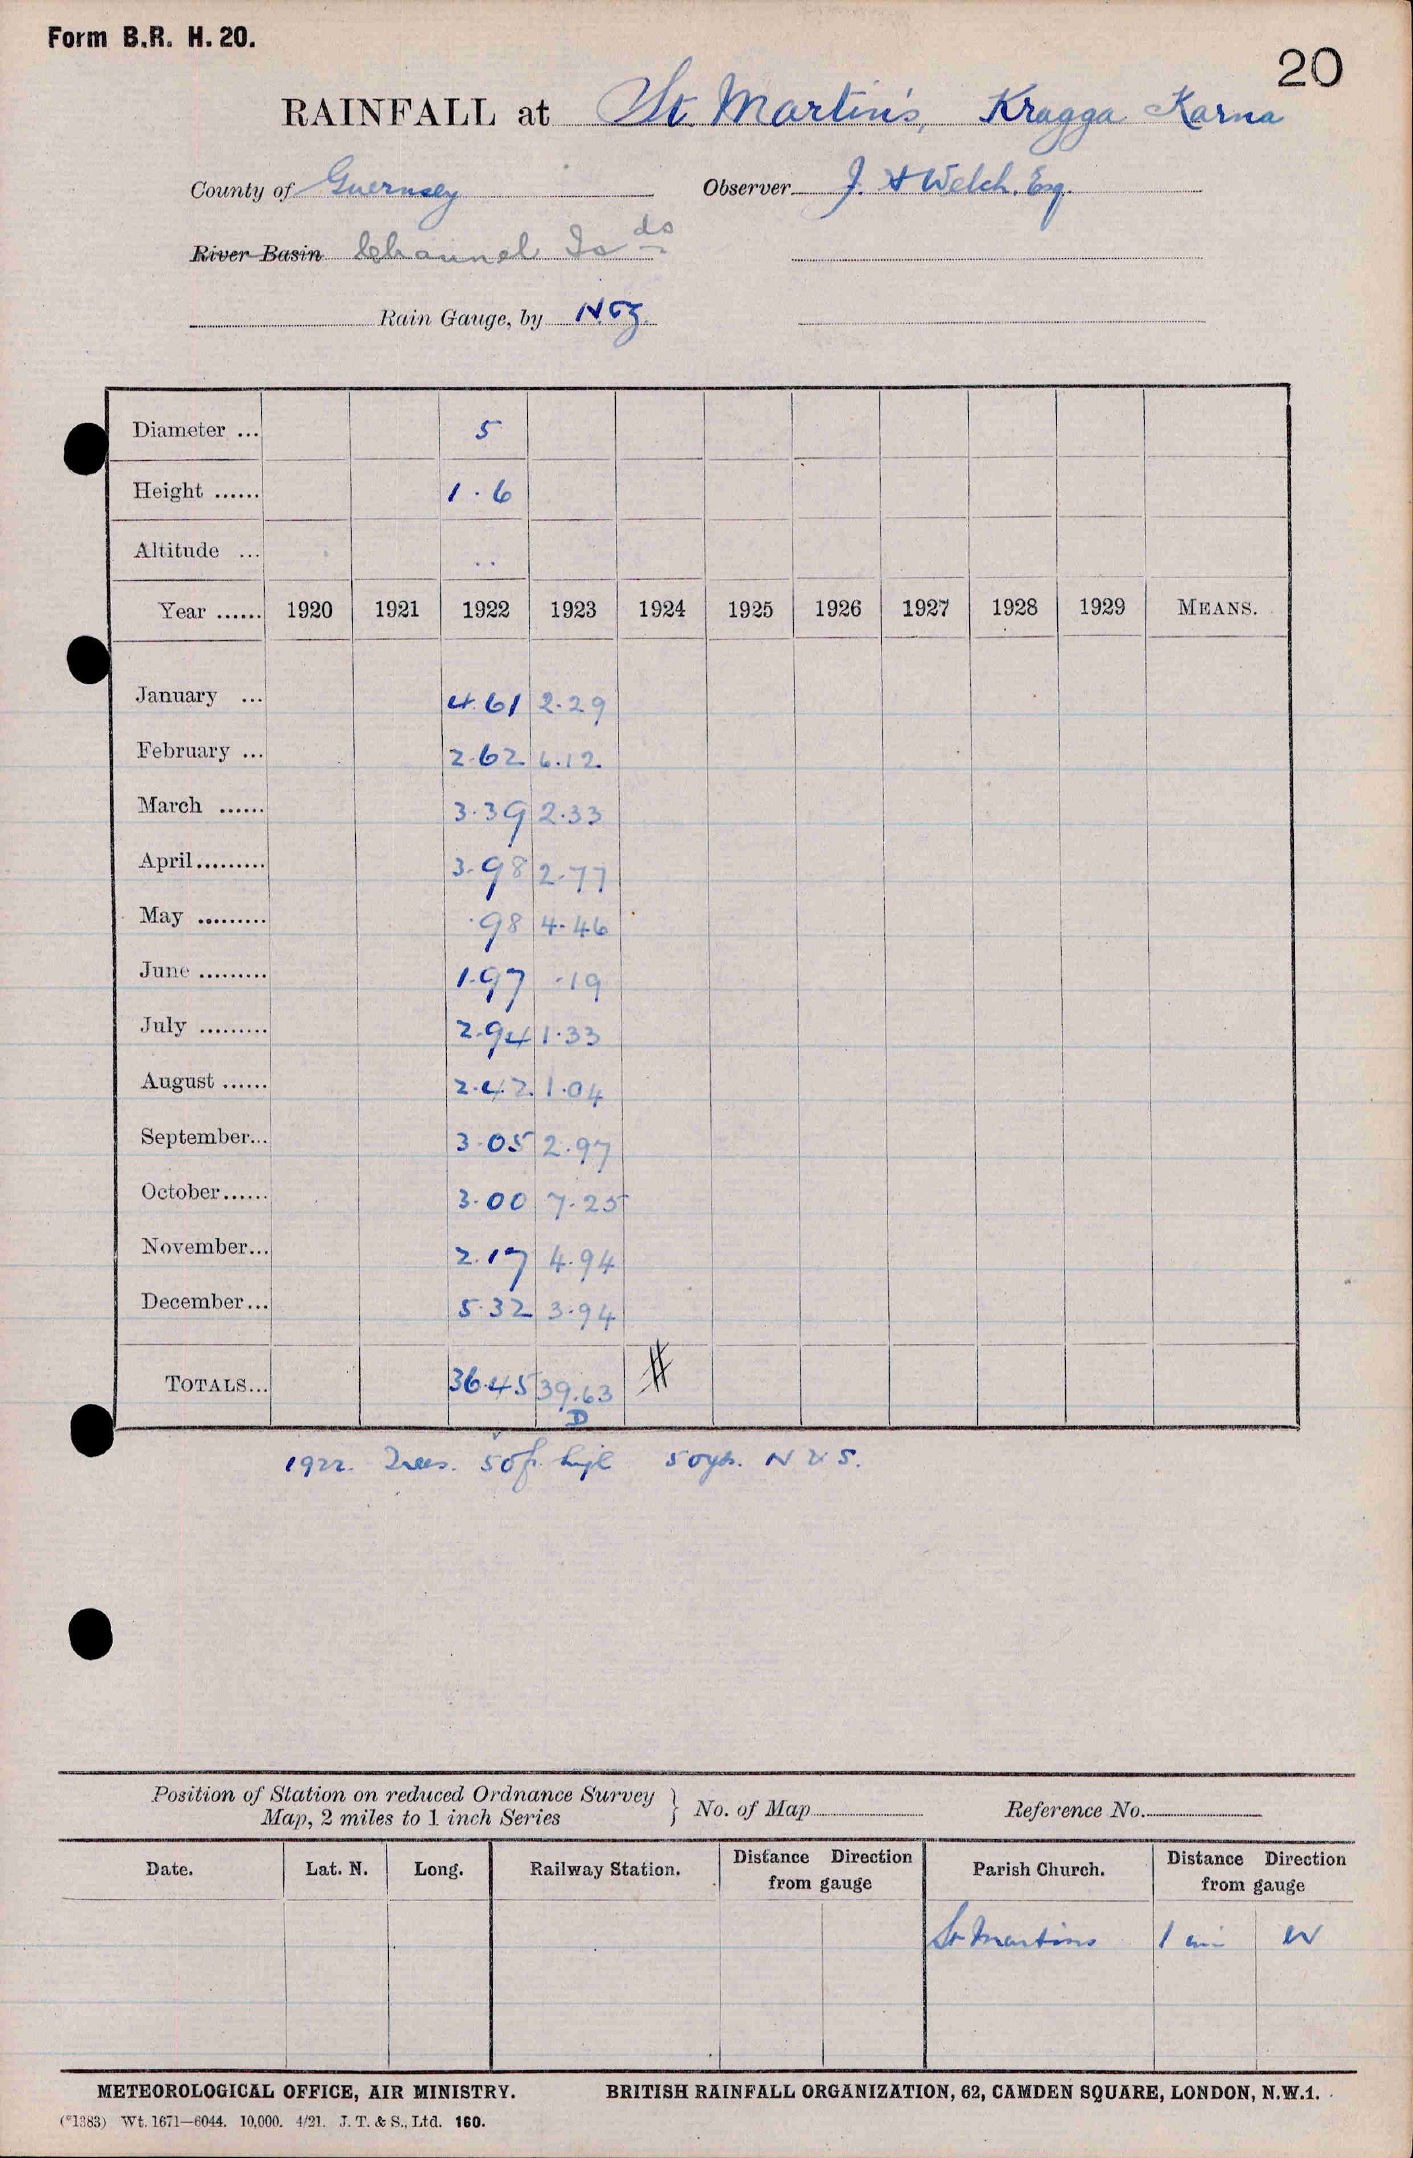 Form B.R. H. 20.
20
RAINFALL at St Martin's, Kragga Karna
County of Guernsey Observer J. H Welch. Esq.
River Basin Channel Isds
Rain Gauge, by N&Z.
Diameter ... 5
Height ...... 1.6
Altitude ... ..
Year ...... 1920 1921 1922 1923 1924 1925 1926 1927 1928 1929 MEANS.
January ... 4.61 2.29
February ... 2.62 6.12
March ...... 3.39 2.33
April......... 3.98 2.77
May ......... .98 4.46
June ......... 1.97 .19
July ......... 2.94 1.33
August ...... 2.42 1.04
September... 3.05 2.97
October...... 3.00 7.25
November... 2.17 4.94
December... 5.32 3.94
TOTALS... 36.45 39.63 #
D
1922. Trees. 50ft. high 50yds. N & S.
Position of Station on reduced Ordnance Survey
Map, 2 miles to 1 inch Series } No. of Map Reference No.
Date. Lat. N. Long. Railway Station. Distance Direction from gauge Parish Church. Distance Direction from gauge
St Martins 1 mi W
METEOROLOGICAL OFFICE, AIR MINISTRY. BRITISH RAINFALL ORGANIZATION, 62, CAMDEN SQUARE, LONDON, N.W.1.
(*1383) Wt. 1671—6044. 10,000. 4/21. J. T. & S., Ltd. 160.